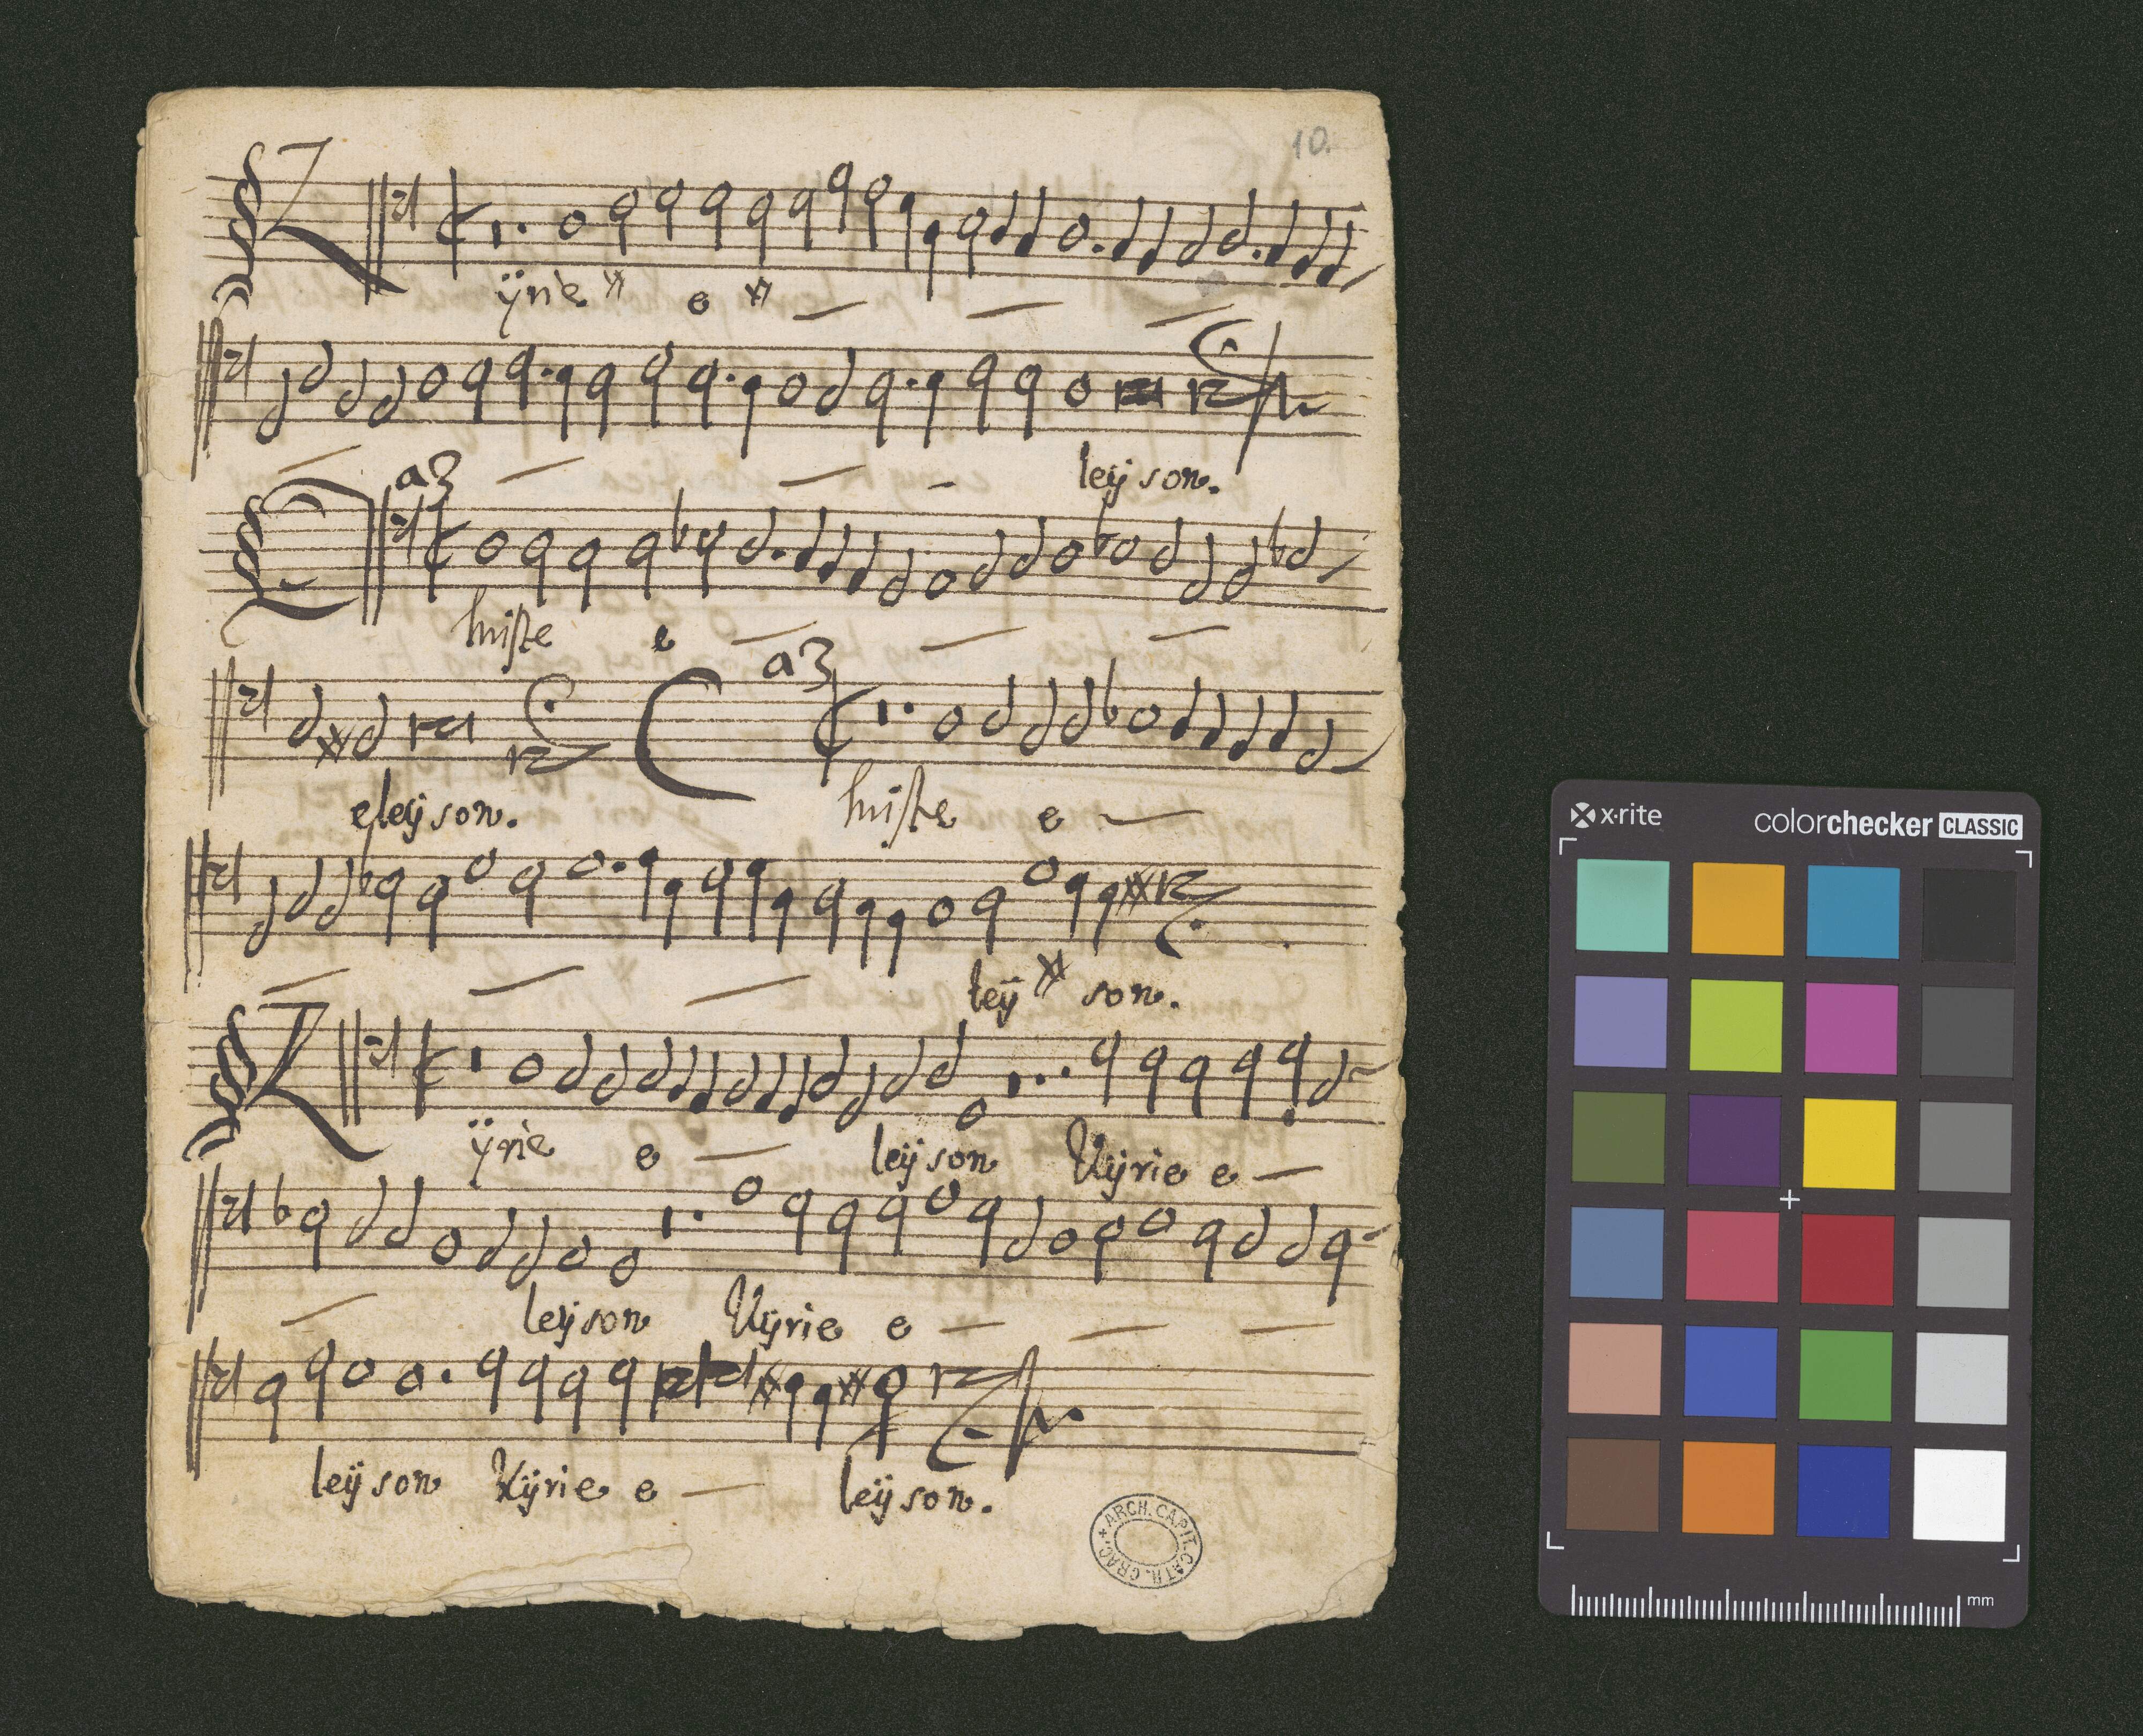 10.
K
ÿrie e
leÿson.
a3
C
hriste e
a3
eleÿson.
C
hriste e
leÿ son.
K
ÿrie e leÿson Kÿrie e
leÿson Kÿrie e
leÿson Kÿrie e leÿson.
ARCH. CAPIT. CATH. CRAC.
x·rite
colorchecker CLASSIC
mm